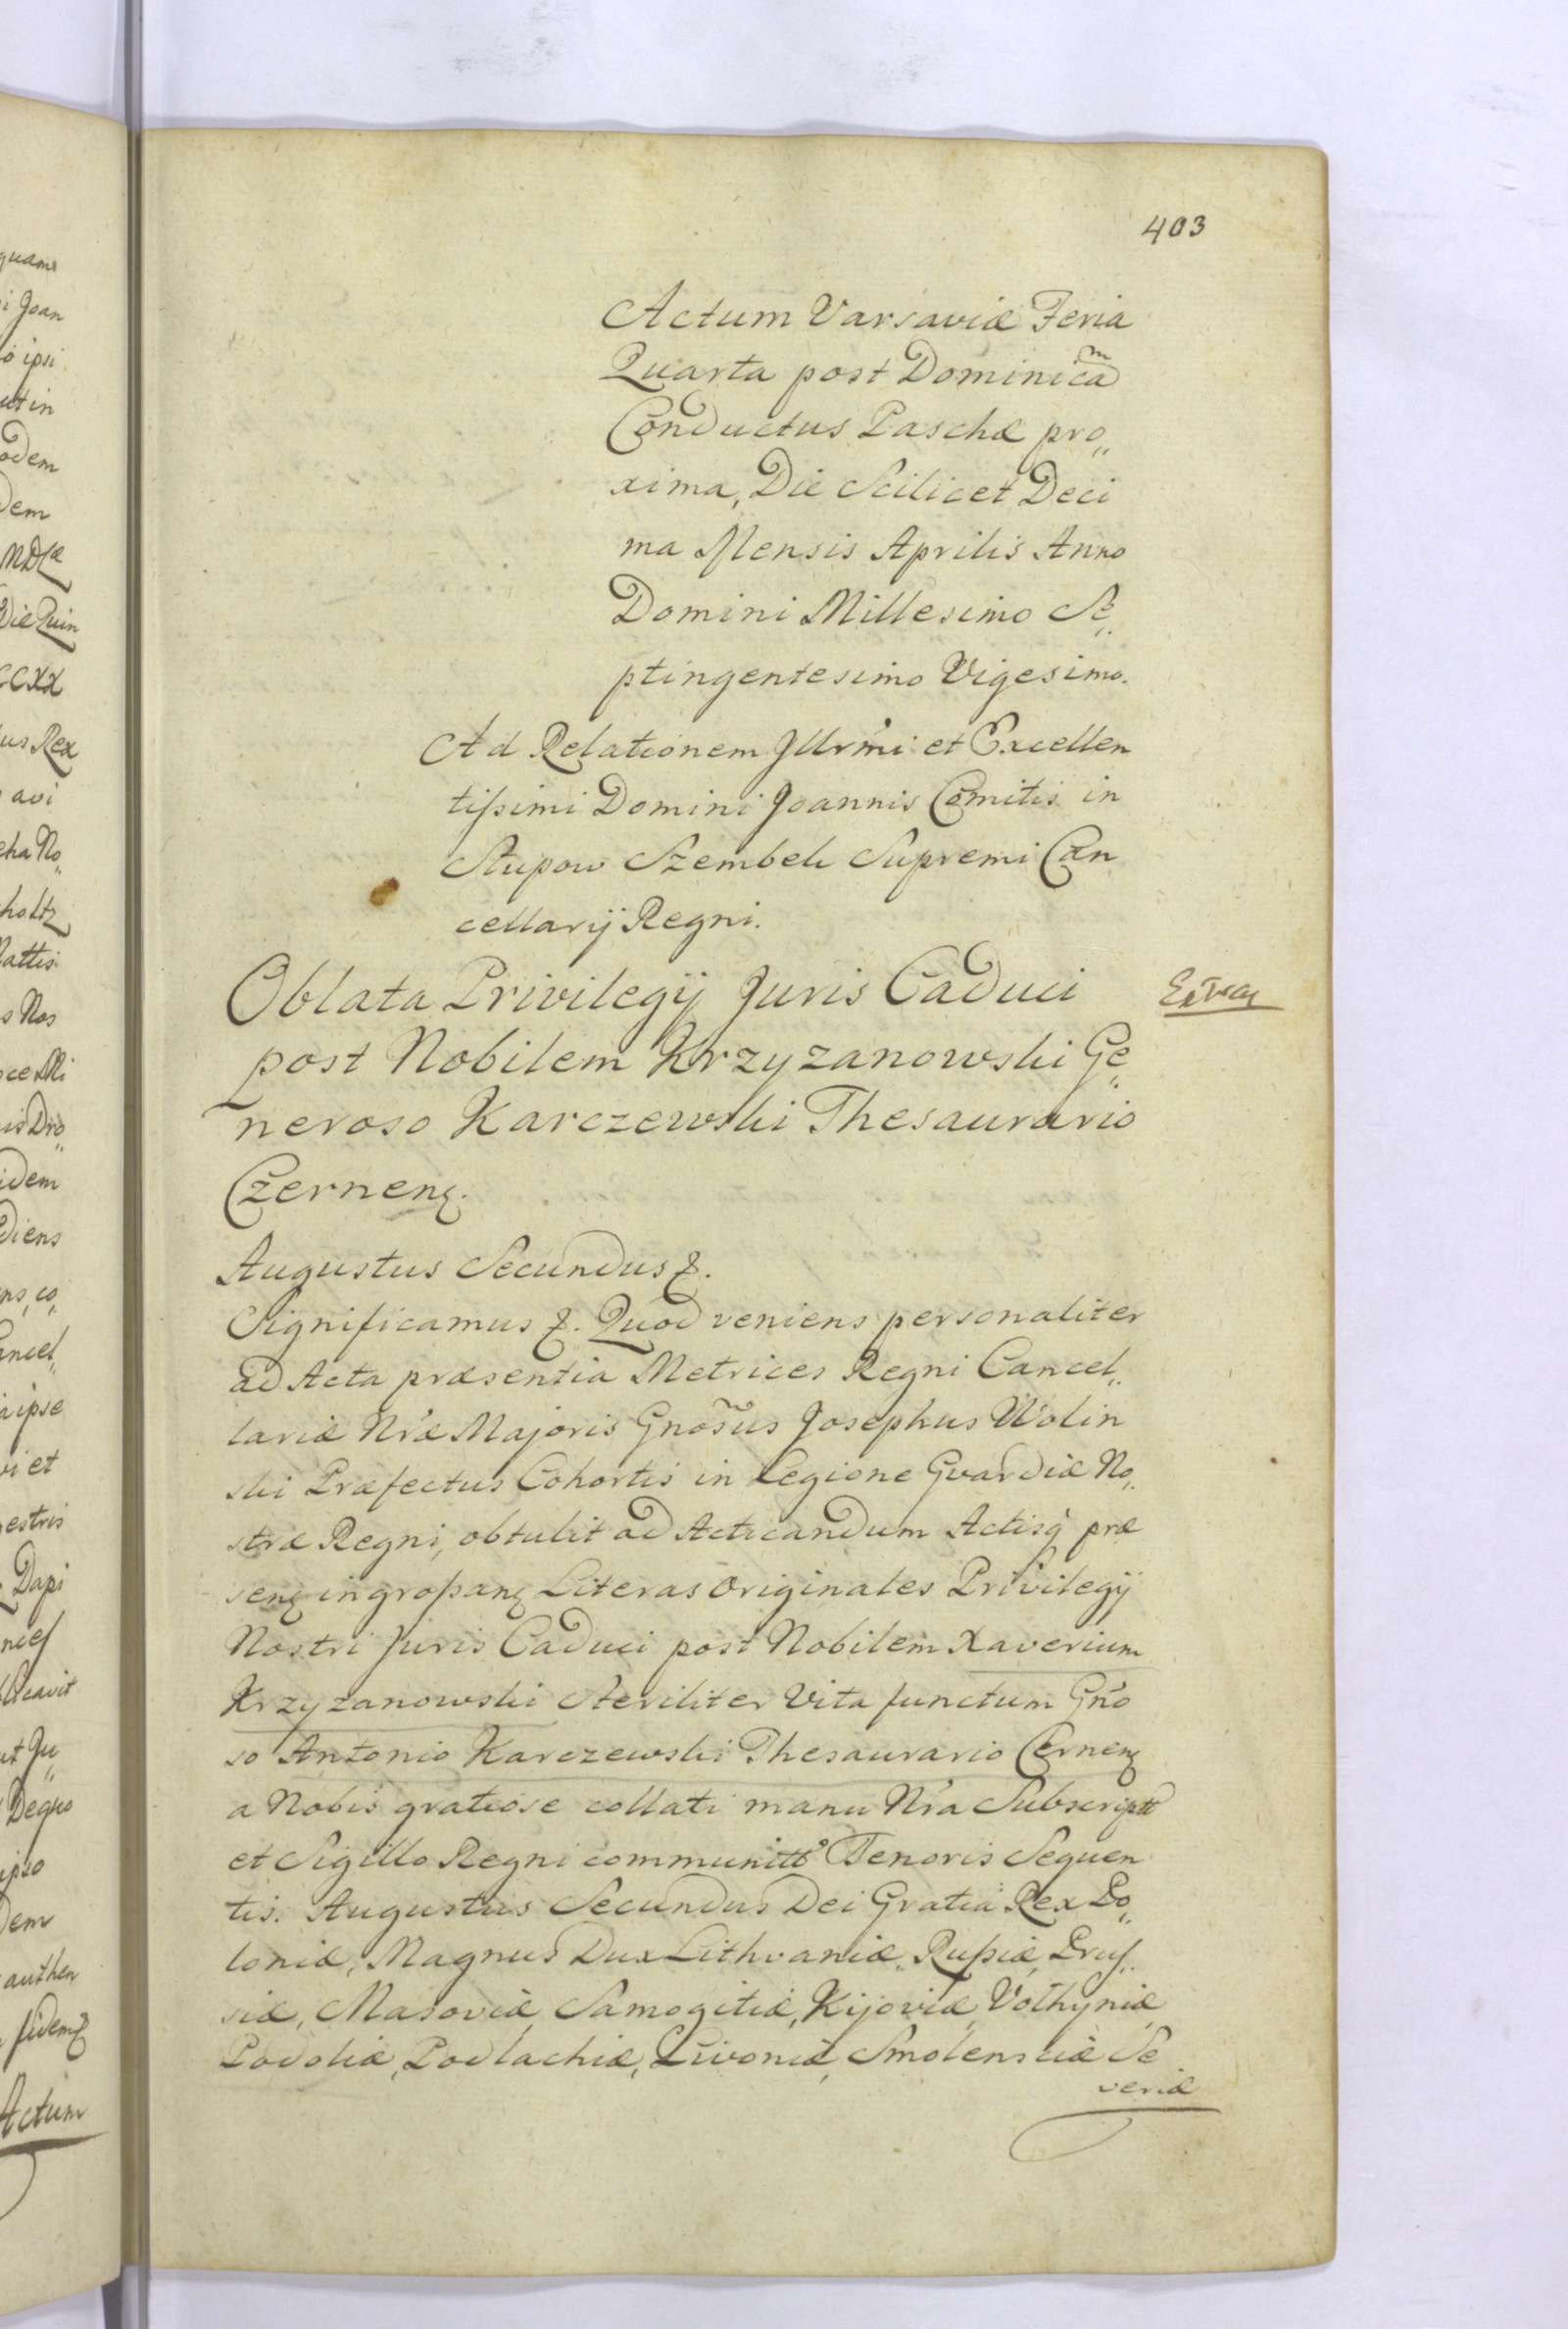 403
Actum Varsaviæ Feria
Quarta post Dominicam
Conductus Paschæ pro„
xima, Die Scilicet Deci
ma Mensis Aprilis Anno
Domini Millesimo Se„
ptingentesimo Vigesimo.
Ad Relationem Illrmi et Excellen
tissimi Domini Joannis Comitis in
Słupow Szembek Supremi Can
cellarij Regni.
Oblata Privilegij Juris Caduci
post Nobilem Krzyzanowski Ge„
neroso Karczewski Thesaurario
Czernenȝ.
Augustus Secundus ꝛ.
Significamus ꝛ. Quod veniens personaliter
ad Acta præsentia Metrices Regni Cancel„
lariæ Nræ Majoris Gnosus Josephus Wolin
ski Præfectus Cohortis in Legione Gvardiæ No„
stræ Regni, obtulit ad Acticandum Actisq præ
senȝ ingrossanȝ Literas Originales Privilegij
Nostri Juris Caduci post Nobilem Xaverium
Krzyzanowski Steriliter Vita functum Gno
so Antonio Karczewski Thesaurario Cernenȝ
a Nobis gratiose collati manu Nra Subscriptt
et Sigillo Regni communitt Tenoris Sequen
tis. Augustus Secundus Dei Gratia Rex Po„
loniæ, Magnus Dux Lithvaniæ, Russiæ, Prus„
siæ, Masoviæ, Samogitiæ, Kijoviæ, Volhyniæ,
Podoliæ, Podlachiæ, Livoniæ, Smolensciæ Se
veriæ
quam
i Joan
ipsi
ut in
odem
dem
Die Quin
CCXX
us Rex
avi
cha No„
holtz
s Nos
idem
diens
ipse
vi et
estris
Dapi
ipso
dem
authen
fidemꝛ
Actum